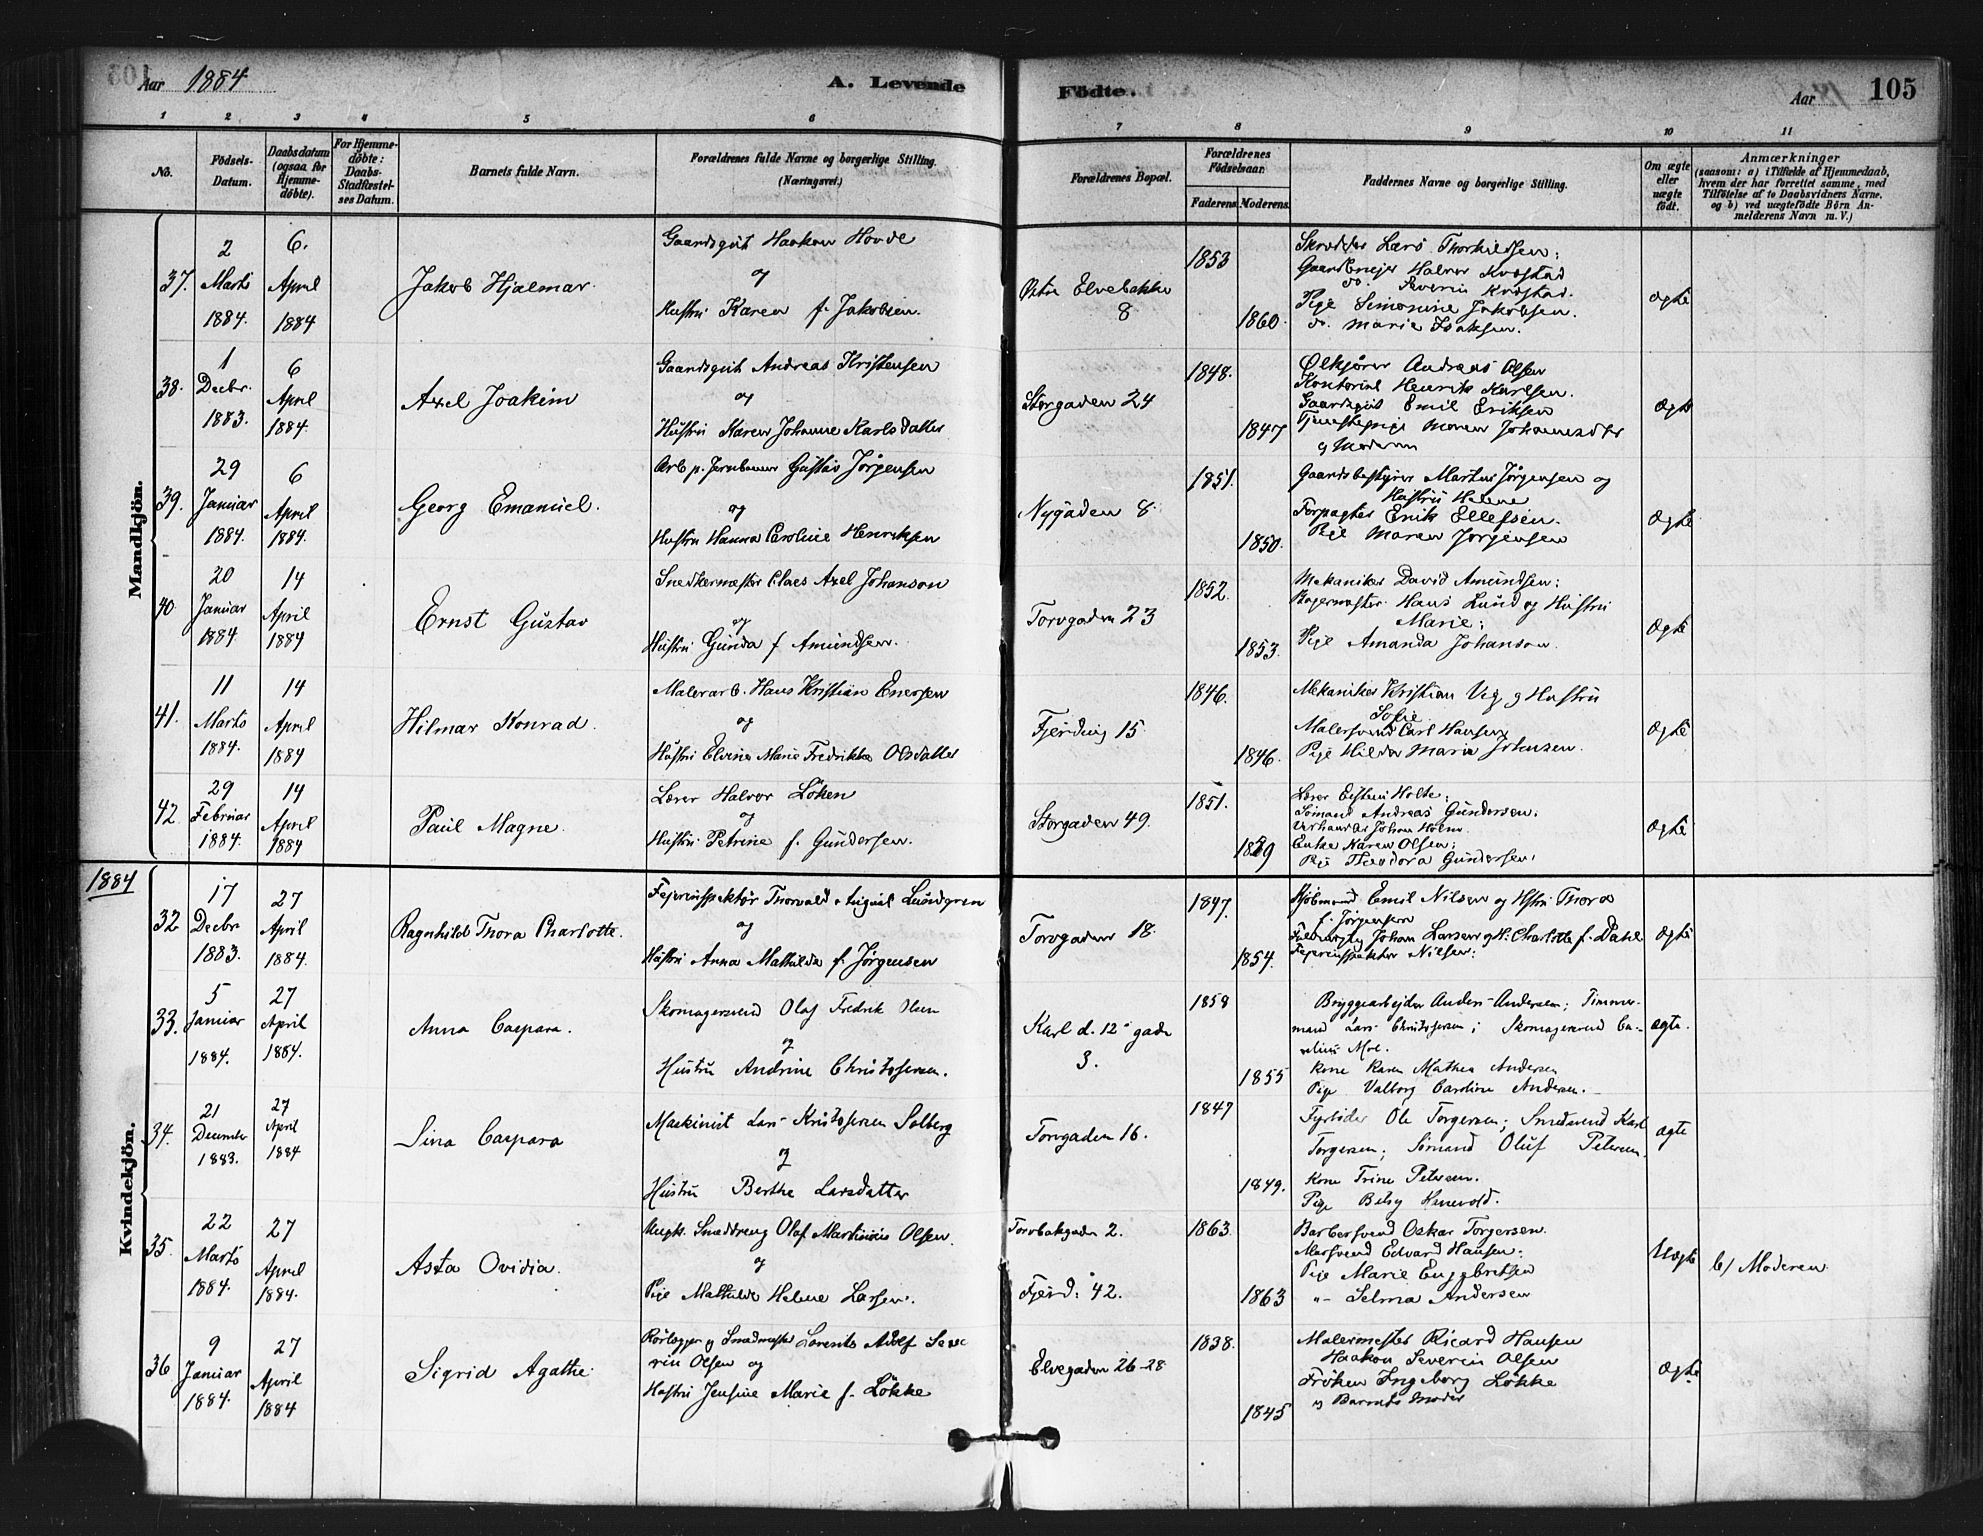 Aar 1884
A. Levende
Födte.
Aar
105
1 2 3 4 5 6 7 8 9 10 11
No.
Födsels-
Datum.
Daabsdatum
(ogsaa for
Hjemme-
döbte).
For Hjemme-
döbte:
Daabs-
Stadfæstel-
ses Datum.
Barnets fulde Navn.
Forældrenes fulde Navne og borgerlige Stilling.
(Næringsvei.)
Forældrenes Bopæl.
Forældrenes
Födselsaar.
Faderens.
Moderens.
Faddernes Navne og borgerlige Stilling.
Om ægte
eller
uægte
födt.
Anmærkninger
(saasom: a) i Tilfælde af Hjemmedaab,
hvem der har forrettet samme, med
Tilföielse af to Daabsvidners Navne.
og b) ved uægtefödte Börn An-
melderens Navn m. V.)
Mandkjön.
37.
2
Marts
1884.
6.
April
1884
Jakob Hjalmar.
Gaardsgut Haakon Hovde
og
Hustru Karen f. Jakobsen.
Østre Elvebakke
8
1853
1860.
Skrædder Lars Thorkildsen;
Gaardbruger Halvor Kvæstad
do. Severin Kvæstad.
Pige Simonine Jakobsen.
do. Marie Isaksen.
ægte
38.
1
Decbr.
1883.
6
April
1884.
Axel Joakim
Gaardsgut Andreas Kristensen
og
Hustru Karen Johanne Karlsdatter
Storgaden 24
1848.
1847
Ølkjører Andreas Olsen
Kontorist Henrik Karlsen.
Gaardsgut Emil Eriksen
Tjenestepige Maren Johannesdtr
og Moderen
Ægte
39.
29
Januar
1884.
6
April
1884.
Georg Emanuel.
Arb. p. Jernbanen Gustav Jørgensen
og
Hustru Hanna Caroline Henriksen
Nygaden 8.
1851.
1850.
Gaardsbestyrer Martin Jörgensen og
Hustru Helene
Forpagter Erik Ellefsen.
Pige Maren Jørgensen
Ægte
40.
20
Januar
1884.
14
April
1884
Ernst Gustav
Snedkermester Claes Axel Johanson
og
Hustru Gunda f. Amundsen.
Torvgaden 23
1852.
1853.
Mekaniker David Amundsen;
Bagermester Hans Lund og Hustru
Marie;
Pige Amanda Johanson.
Ægte
41.
11
Marts
1884.
14
April
1884
Hilmar Konrad.
Malerarb. Hans Kristian Enersen
og
Hustru Elvine Marie Fredrikke Olsdatter
Fjerding 15.
1846.
1846.
Mekaniker Kristian Vig og Hustru
Sofie
Malersvend Carl Hansen
Pige Hilda Maria Johnsen.
Ægte
42
29
Februar
1884.
14
April
1884
Paul Magne.
Lærer Halvor Löken
og
Hustru Petrine f. Gundersen.
Storgaden 49.
1851.
Lærer Eistein Holte;
Sömand Andreas Gundersen.
Johan Holm
Enke Karen Olsen;
Pige Theodora Gundersen.
Ægte
1884
Kvindekjön.
32
17
Decbr
1883.
27
April
1884.
Ragnhild Thora Charlotte.
Fejerinspektør Thorvald August Lundgren
og
Hustru Anna Mathilda f. Jørgensen
Torvgaden 18.
1847.
1854.
Kjøbmand Emil Nilsen og Hstru Thora
f. Jørgensen
Johan Larsen og H. Charlotte f. Dahl
Fejerinspektør Nilsen.
Ægte
33.
5
Januar
1884.
27
April
1884.
Anna Caspara.
Skomagersvend Olaf Fredrik Hem
og
Hustru Andrine Christofersen.
Karl d. 12s gade
3.
1858
1855
Bryggearbejder Anders Andersen; Timmer-
mand Lars Christofersen; Skomagersvend Ca-
relius Moe.
Kone Karen Mathea Andersen
Pige Valborg Caroline Andersen.
ægte.
34.
21
December
1883.
27
April
1884
Sina Caspara
Maskinist Lars Kristofersen Solberg
og
Hustru Berthe Larsdatter
Torvgaden 16.
1847
1849.
Fyrbøder Ole Torgersen; Smedsvend Karl
Torgersen; Sømand Oluf Petersen.
Kone Trine Petersen.
Pige Betsy
ægte
35.
22
Marts
1884.
27
April
1884.
Asta Ovidia.
Ungk. Smeddreng Olaf Martinius Olsen.
og
Pige Mathilde Helene Larsen.
Torvbakgaden 2.
Fjerd: 42.
1863.
1863
Barbersvend Oskar Torgersen.
Mursvend Edvard Hansen;
Pige Marie Engebretsen
"- Selma Andersen
Uægte
b) Moderen
36
9
Januar
1884.
27
April
1884
Sigrid Agathe
Rørlægger og Smedmester Lorentz Adolf Seve
rin Olsen og
Hustru Jensine Marie f. Løkke
Elvegaden 26-28
1838.
1845
Malermester Ricard Hansen
Haakon Severin Olsen
Frøken Ingeborg Løkke
og Barnets Moder
Ægte